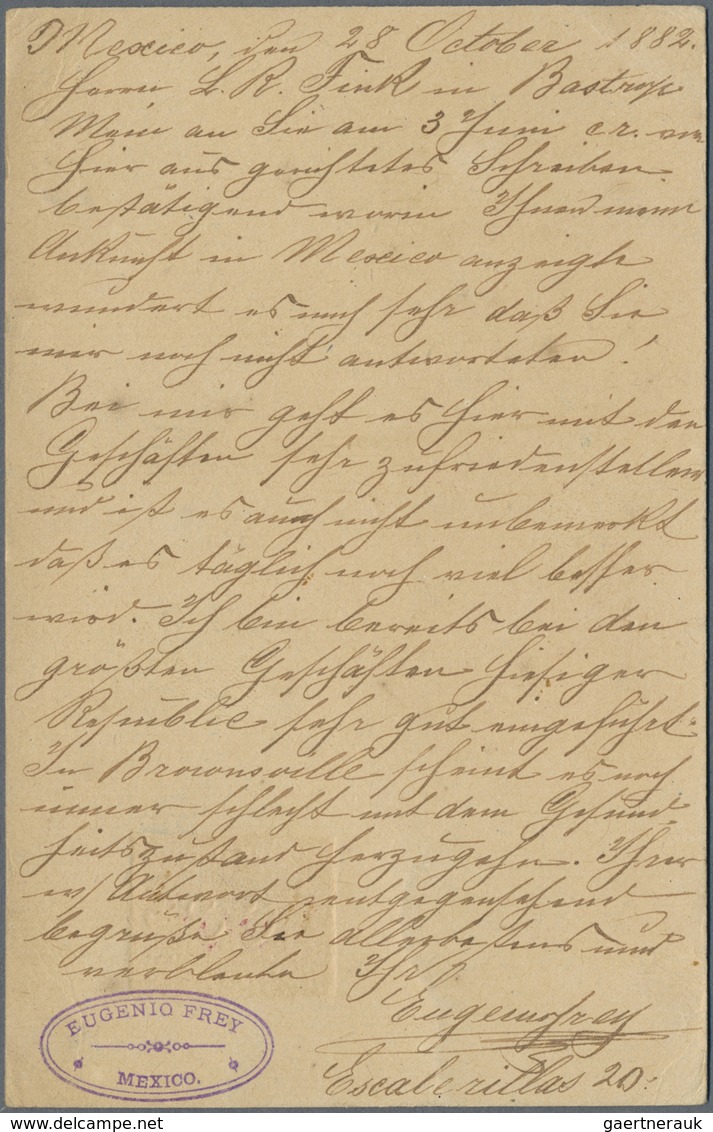 Mexico, den 28 October 1882.
Herrn L. R. Fink in Bastrop
Mein an Sie am 3 Juni c.r. von
hier aus gerichtetes Schreiben
bestätigend worin Ihnen meine
Ankunft in Mexico anzeigte
wundert es mich sehr daß Sie
mir noch nicht antworteten!
Bei mir geht es hier mit den
Geschäften sehr zufriedenstellend
und ist es auch nicht unbemerkt
daß es täglich noch viel besser
wird. Ich bin bereits bei den
größten Geschäften hiesiger
Republic sehr gut eingeführt.
In Brownsville scheint es noch
immer schlecht mit dem Gesund-
heitszustand herzugehn. Ihrer
w/ Antwort entgegensehend
begrüße Sie allerbestens und
verbleibe Ihr
Eugenio Frey
Escalerillas 20.
EUGENIO FREY
MEXICO.
gaertnerauk